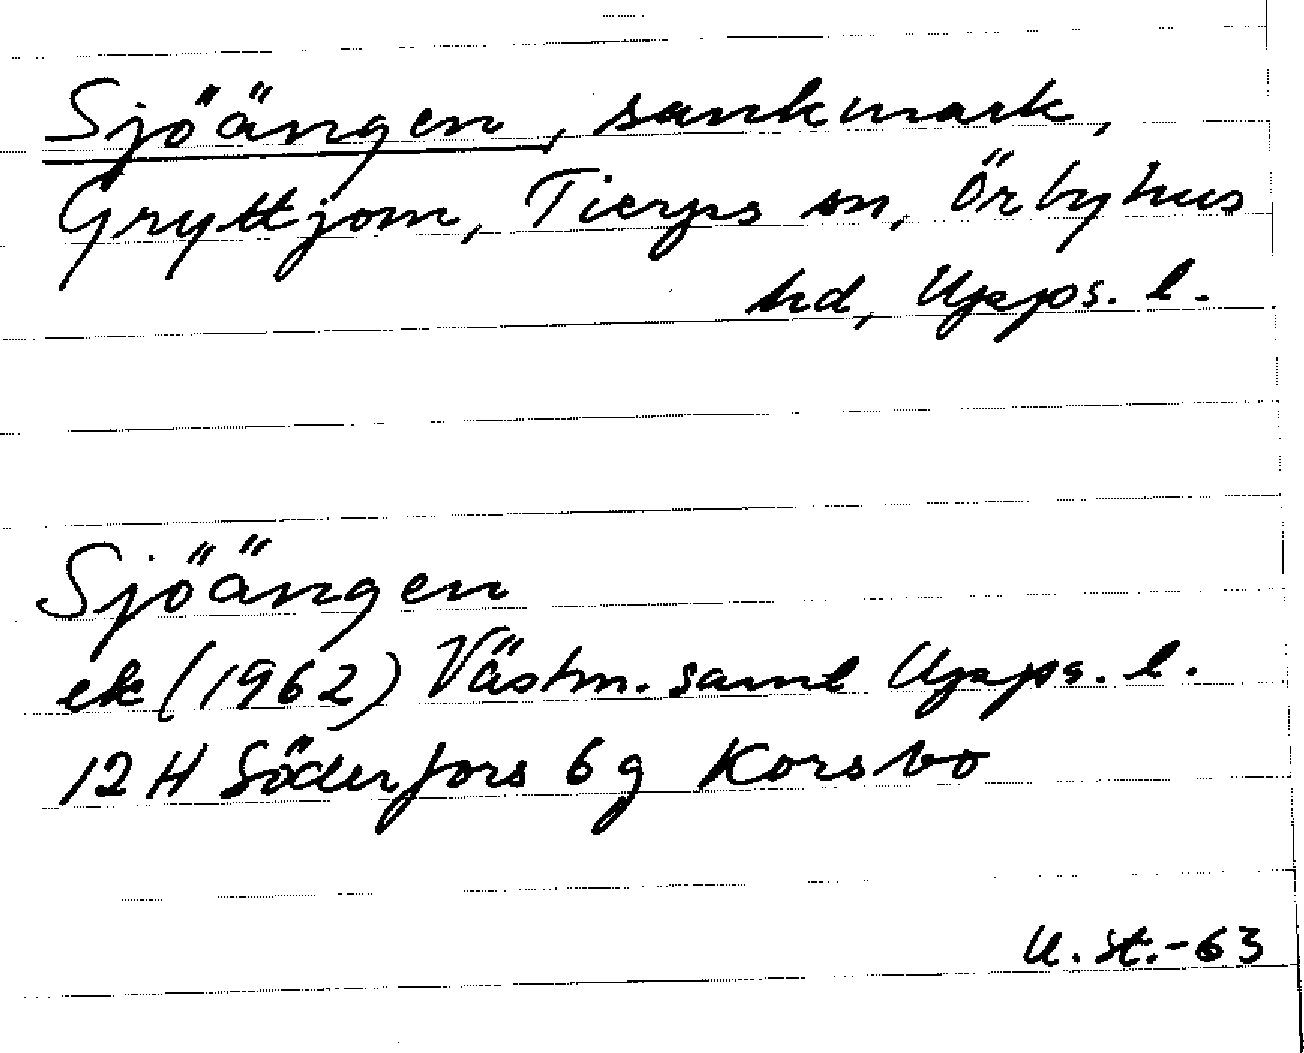 Sjöängen, sankmark,
Gryttjom, Tierps sn, Örbyhus
hd, Upps. l.
Sjöängen
ek (1962) Västm. samt Upps. l.
12 H Söderfors 6 g Korsbo
U. St. -63